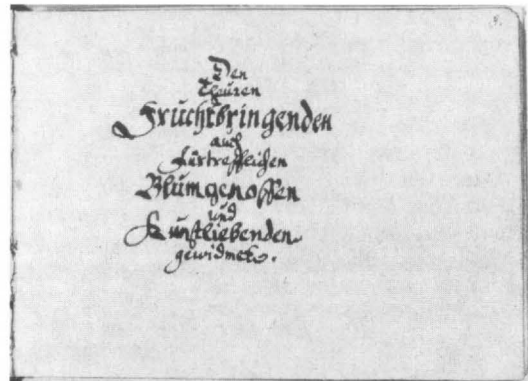 8.
Den
Theuren
Fruchtbringenden
auch
Fürtrefflichen
Blumgenossen
und
Kunstliebenden
gewidmet.